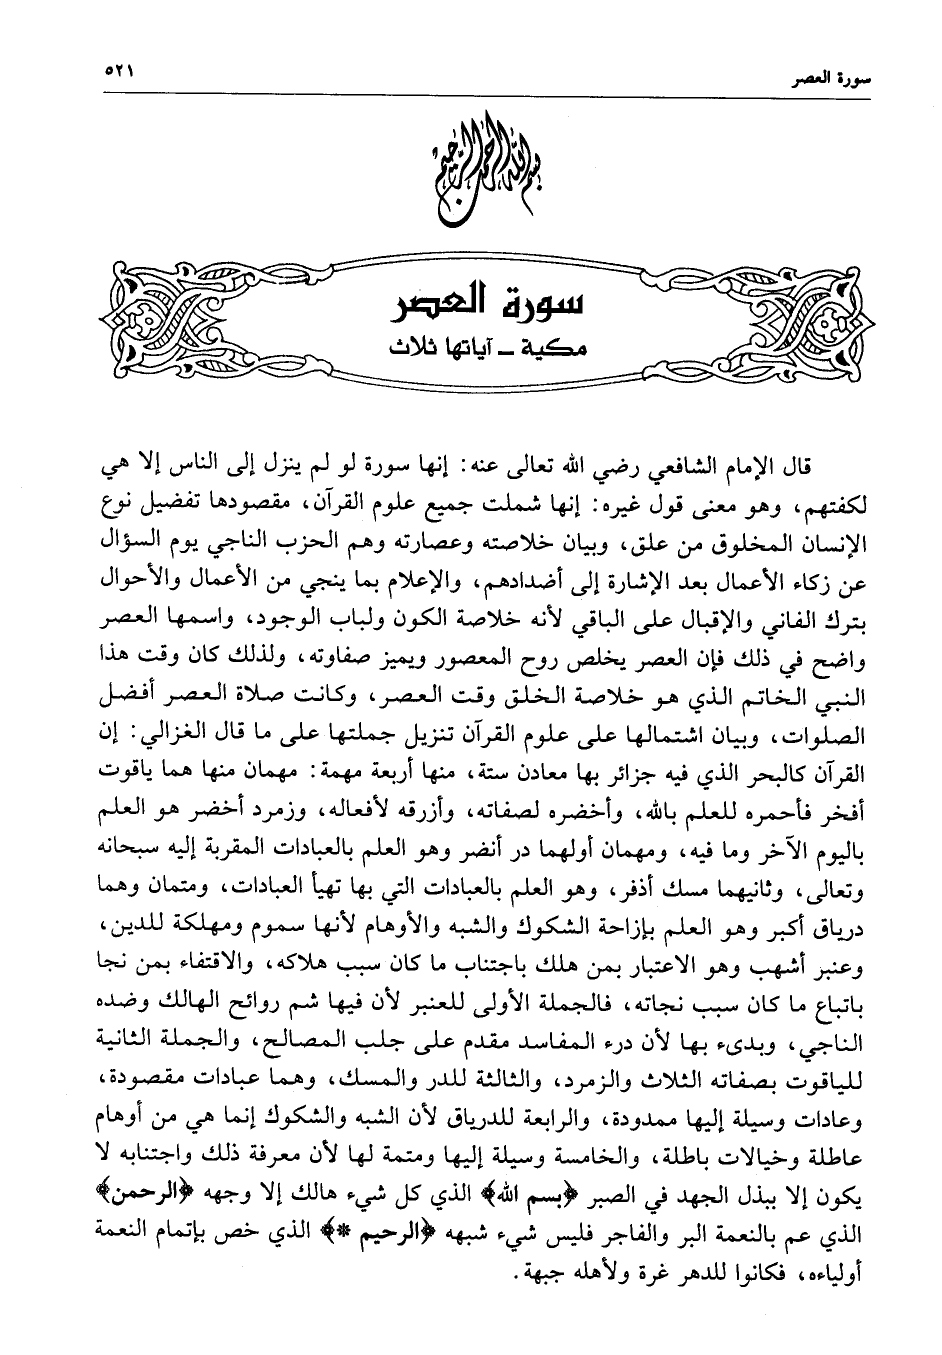 سورة العصر
٥٢١
بسم الله الرحمن الرحيم
سورة العصر
مكية ـ آياتها ثلاث
قال الإمام الشافعي رضي الله تعالى عنه: إنها سورة لو لم ينزل إلى الناس إلا هي
لكفتهم، وهو معنى قول غيره: إنها شملت جميع علوم القرآن، مقصودها تفضيل نوع
الإنسان المخلوق من علق، وبيان خلاصته وعصارته وهم الحزب الناجي يوم السؤال
عن زكاء الأعمال بعد الإشارة إلى أضدادهم، والإعلام بما ينجي من الأعمال والأحوال
بترك الفاني والإقبال على الباقي لأنه خلاصة الكون ولباب الوجود، واسمها العصر
واضح في ذلك فإن العصر يخلص روح المعصور ويميز صفاوته، ولذلك كان وقت هذا
النبي الخاتم الذي هو خلاصة الخلق وقت العصر، وكانت صلاة العصر أفضل
الصلوات، وبيان اشتمالها على علوم القرآن تنزيل جملتها على ما قال الغزالي: إن
القرآن كالبحر الذي فيه جزائر بها معادن ستة، منها أربعة مهمة: مهمان منها هما ياقوت
أفخر فأحمره للعلم بالله، وأخضره لصفاته، وأزرقه لأفعاله، وزمرد أخضر هو العلم
باليوم الآخر وما فيه، ومهمان أولهما در أنضر وهو العلم بالعبادات المقربة إليه سبحانه
وتعالى، وثانيهما مسك أذفر، وهو العلم بالعبادات التي بها تهيأ العبادات، ومتمان وهما
درياق أكبر وهو العلم بإزاحة الشكوك والشبه والأوهام لأنها سموم ومهلكة للدين،
وعنبر أشهب وهو الاعتبار بمن هلك باجتناب ما كان سبب هلاكه، والاقتفاء بمن نجا
باتباع ما كان سبب نجاته، فالجملة الأولى للعنبر لأن فيها شم روائح الهالك وضده
الناجي، وبدىء بها لأن درء المفاسد مقدم على جلب المصالح، والجملة الثانية
للياقوت بصفاته الثلاث والزمرد، والثالثة للدر والمسك، وهما عبادات مقصودة،
وعادات وسيلة إليها ممدودة، والرابعة للدرياق لأن الشبه والشكوك إنما هي من أوهام
عاطلة وخيالات باطلة، والخامسة وسيلة إليها ومتمة لها لأن معرفة ذلك واجتنابه لا
يكون إلا ببذل الجهد في الصبر ﴿بسم الله﴾ الذي كل شيء هالك إلا وجهه ﴿الرحمن﴾
الذي عم بالنعمة البر والفاجر فليس شيء شبهه ﴿الرحيم *﴾ الذي خص بإتمام النعمة
أولياءه، فكانوا للدهر غرة ولأهله جبهة.